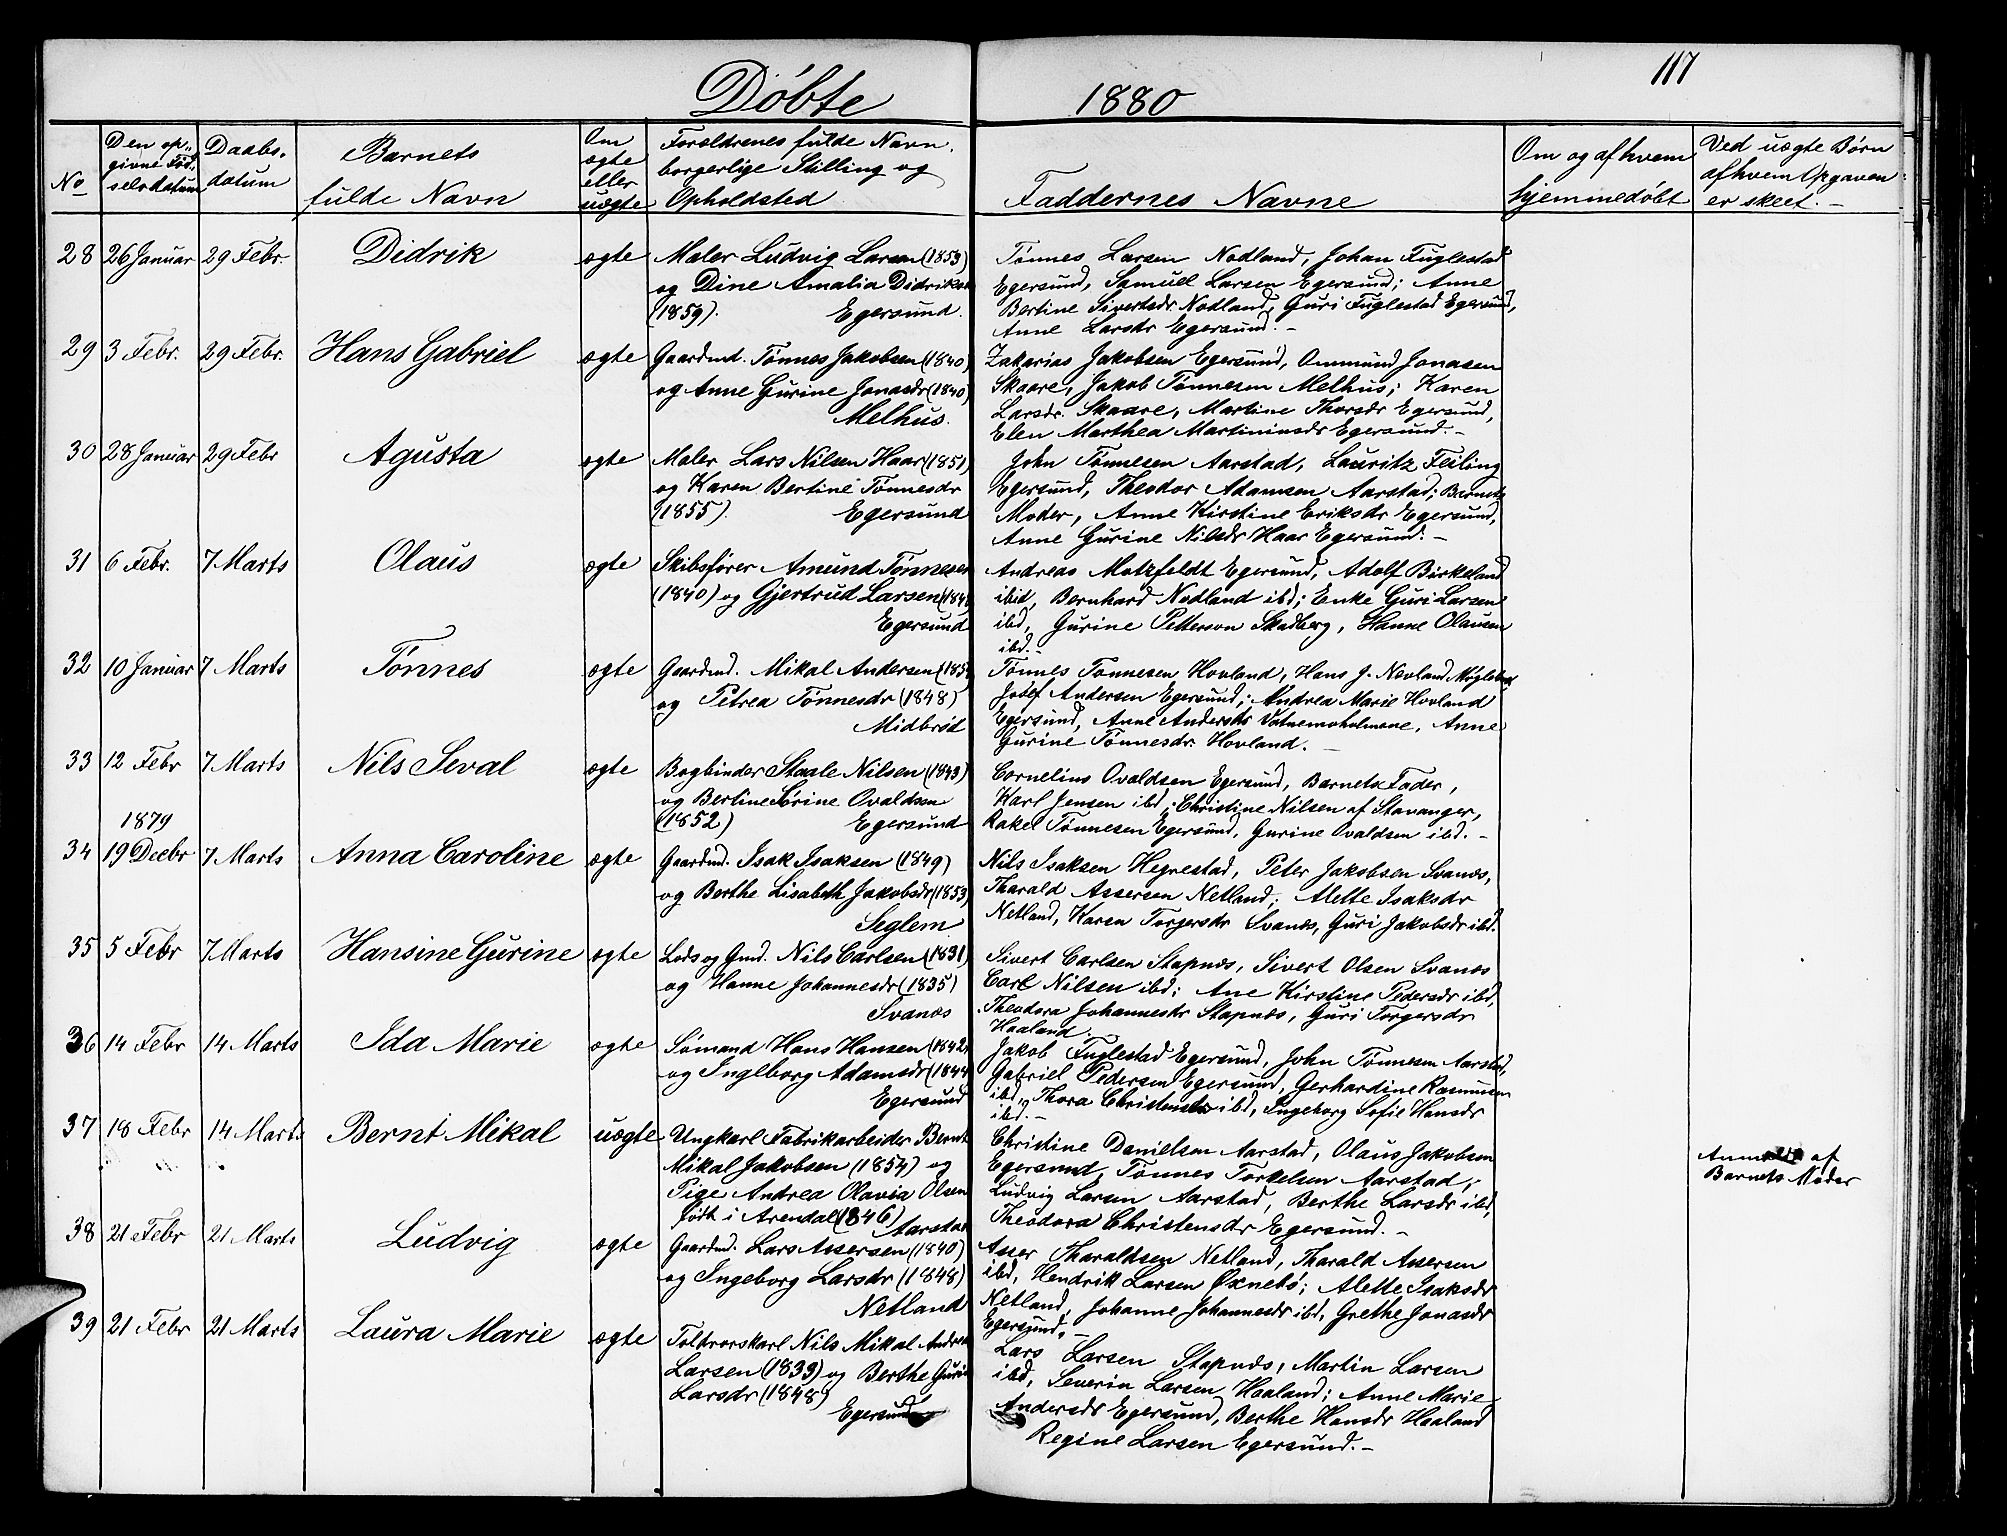 117
Døbte 1880
No
Den op-
givne Fød-
selsdatum
Daabs-
datum
Barnets
fulde Navn
Om
ægte
eller
uægte
Forældrenes fulde Navn,
borgerlige Stilling og
Opholdsted
Faddernes Navne
Om og af hvem
hjemmedøbt
Ved uægte Børn
af hvem Opgaven
er skeet. —
28 26 Januar 29 Febr. Didrik ægte
Maler Ludvig Larsen (1853)
og Dine Amalia Didriksen
(1859). Egersund.
Tønnes Larsen Nodland, Johan Fuglestad
Egersund, Samuel Larsen Egersund; Anne
Bertine Sivertsdr Nodland, Guri Fuglestad Egersund,
Anne Larsdr Egersund. —
29 3 Febr. 29 Febr. Hans Gabriel ægte
Gaardmd. Tønnes Jakobsen (1840)
og Anne Gurine Jonasdr (1840)
Melhus.
Zakarias Jakobsen Egersund, Ommund Jonasen
Skaare, Jakob Tønnesen Melhus; Karen
Larsdr. Skaare, Martine Thorsdr Egersund,
Elen Marthea Martininsdr Egersund. —
30 28 Januar 29 Febr Agusta ægte
Maler Lars Nilsen Haar (1851)
og Karen Bertine Tønnesdr
(1855). Egersund
John Tønnesen Aarstad, Lauritz Feiling
Egersund, Theodor Adamsen Aarstad; Barnets
Moder, Anne Kirstine Eriksdr Egersund,
Anne Gurine Nilsdr Haar Egersund. —
31 6 Febr. 7 Marts Olaus ægte
Skibsfører Amund Tønnesen
(1840) og Gjertrud Larsen
Egersund
Andreas Motzfeldt Egersund, Adolf Birkeland
ibid, Bernhard Nodland ibd; Enke Guri Larsen
ibd, Gurine Petterson Skadberg, Hanne Olausen
ibd. —
32 10 Januar 7 Marts Tønnes ægte
Gaardmd. Mikal Andersen
og Petrea Tønnesdr (1848)
Midbrød
Tønnes Tønnesen Hovland, Hans J. Nevland Møglebust
Josef Andersen Egersund; Andrea Marie Hovland
Egersund, Anne Andersdr Vatnemoholmene, Anne
Gurine Tønnesdr. Hovland. —
33 12 Febr 7 Marts Nils Seval ægte
Bogbinder Staale Nilsen (1843)
og Bertine Sørine Ovaldsen
(1852) Egersund
Cornelius Ovaldsen Egersund, Barnets Fader,
Karl Jensen ibd; Christine Nilsen af Stavanger,
Rakel Tønnesen Egersund, Gurine Ovaldsen ibd. —
1879
34 19 Decbr 7 Marts Anna Caroline ægte
Gaardmd. Isak Isaksen (1849)
og Berthe Lisabeth Jakobsdr (1853)
Seglem
Nils Isaksen Hegrestad, Peter Jakobsen Svanes,
Tharald Assersen Netland; Alette Isaksdr
Netland, Karen Torgersdr Svanes, Guri Jakobsdr ibd.
35 5 Febr 7 Marts Hansine Gurine ægte
Lods og Gmd. Nils Carlsen (1831)
og Hanne Johannesdr (1835)
Svanæs
Sivert Carlsen Stapnæs, Sivert Olsen Svanæs
Carl Nilsen ibd; Ane Kirstine Pedersdr ibd,
Theodora Johannesdr Stapnæs, Guri Torgersdr
Haaland.
36 14 Febr 14 Marts Ida Marie ægte
Sømand Hans Hansen (1842)
og Ingeborg Adamsdr (1844
Egersund
Jakob Fuglestad Egersund, John Tønnesen Aarstad,
Gabriel Pedersen Egersund, Gerhardine Rasmusen
ibd, Thora Christensdr ibd, Ingeborg Sofie Hansdr
ibd. —
37 18 Febr 14 Marts Bernt Mikal uægte
Ungkarl Fabrikarbeider Bernt
Mikal Jakobsen (1854) og
Pige Andrea Olavia Olsen
født i Arendal (1846) Aarstad
Christine Danielsen Aarstad, Olaus Jakobsen
Egersund, Tønnes Torkelsen Aarstad;
Ludvig Larsen Aarstad, Berthe Larsdr ibd,
Theodora Christensdr Egersund. —
af
Barnets Moder
38 21 Febr 21 Marts Ludvig ægte
Gaardmd. Lars Assersen (1840)
og Ingeborg Larsdr (1848)
Netland
Asser Tharaldsen Netland, Tharald Assersen
ibd, Hendrik Larsen Øxnetø; Alette Isaksdr
Netland, Johanne Johannesdr ibd, Grethe Jonasdr
Egersund. —
39 21 Febr 21 Marts Laura Marie ægte
Toldrorskarl Nils Mikal Andreas
Larsen (1833) og Berthe Gurine
Larsdr (1848)
Egersund
Lars Larsen Stapnæs, Martin Larsen
ibd, Severin Larsen Haaland; Anne Marie
Andersdr Egersund, Berthe Hansdr Haaland
Regine Larsen Egersund. —